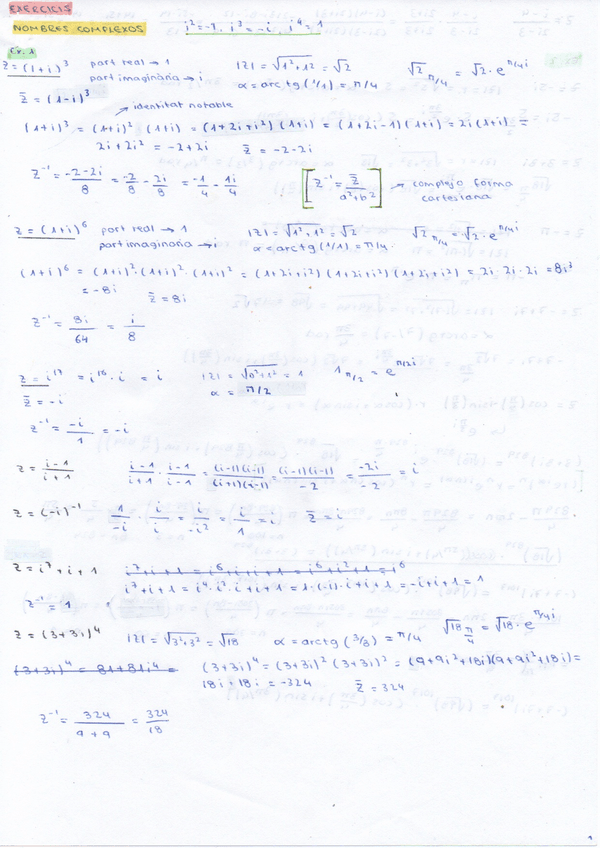 EXERCICIS
NOMBRES COMPLEXOS
i²=-1, i³=-i, i⁴=1
Ex. 1
z = (1+i)³ part real → 1 |z| = √1²+1² = √2 √2 π/4 = √2 · e^π/4i
part imaginària → i α = arctg (1/1) = π/4
z̄ = (1-i)³
→ identitat notable
(1+i)³ = (1+i)² (1+i) = (1+2i+i²)(1+i) = (1+2i-1)(1+i) = 2i(1+i) =
2i+2i² = -2+2i z̄ = -2-2i
z⁻¹ = -2-2i/8 = -2/8 - 2i/8 = -1/4 - 1i/4 [z⁻¹ = z̄/a²+b²] → complejo forma
cartesiana
z = (1+i)⁶ part real → 1 |z| = √1²+1² = √2 √2 π/4 = √2 · e^π/4i
part imaginària → i α = arctg (1/1) = π/4
(1+i)⁶ = (1+i)²·(1+i)²·(1+i)² = (1+2i+i²)(1+2i+i²)(1+2i+i²) = 2i·2i·2i = 8i³
= -8i z̄ = 8i
z⁻¹ = 8i/64 = i/8
z = i¹⁷ = i¹⁶·i = i |z| = √0²+1² = 1 1 π/2 = e^π/2i
z̄ = -i α = π/2
z⁻¹ = -i/1 = -i
z = i-1/i+1 i-1/i+1 · i-1/i-1 = (i-1)(i-1)/(i+1)(i-1) = (i-1)(i-1)/-2 = -2i/-2 = i
z = (-i)⁻¹ 1/-i · i/i = i/-i² = i/1 = i z̄ = i
z = i⁷+i+1 i⁷+i+1 = i⁶·i+i+1 = i⁶+i²+1 = i⁶
i⁷+i+1 = i⁴·i²·i+i+1 = 1·(-1)·i+i+1 = -i+i+1 = 1
z⁻¹ = 1
z = (3+3i)⁴ |z| = √3²+3² = √18 α = arctg (3/3) = π/4 √18 π/4 = √18 · e^π/4i
(3+3i)⁴ = 81+81i⁴ = (3+3i)⁴ = (3+3i)² (3+3i)² = (9+9i²+18i)(9+9i²+18i) =
18i·18i = -324 z̄ = 324
z⁻¹ = 324/9+9 = 324/18
1